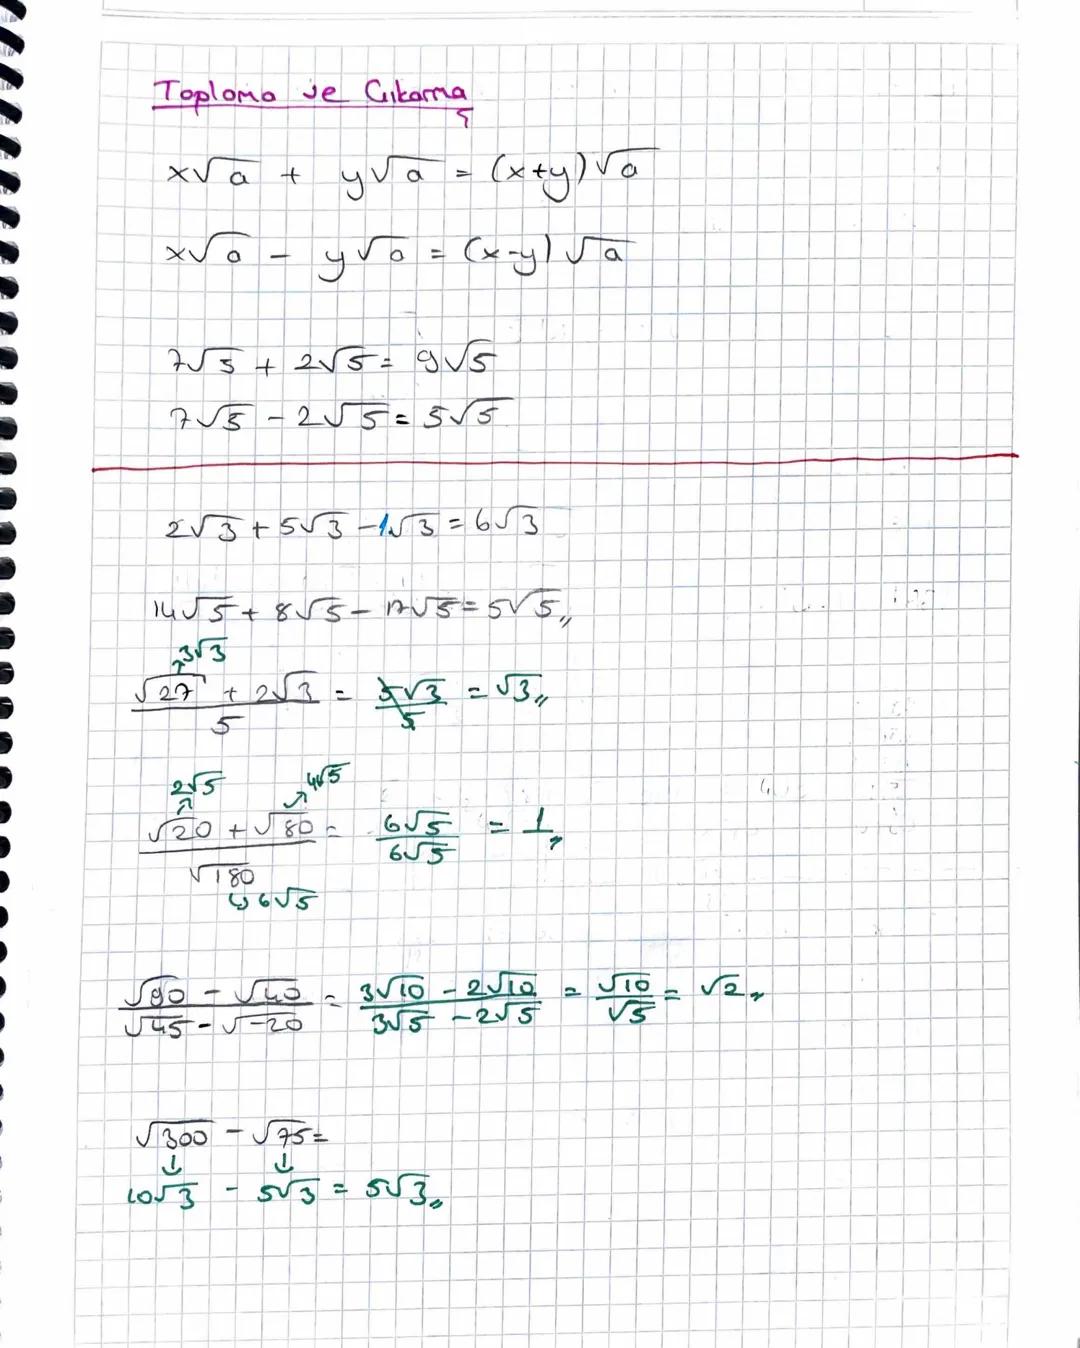 Toplama ve Çıkarma
x√a + y√a = (x+y)√a
x√a - y√a = (x-y)√a
7√5 + 2√5 = 9√5
7√5 - 2√5 = 5√5
2√3 + 5√3 - 1√3 = 6√3
14√5 + 8√5 - 17√5 = 5√5,,
3√3
(√27 + 2√3)/5 = 5√3/5 = √3,,
2√5 4√5
(√20 + √80)/√180 = 6√5/6√5 = 1,,
↳ 6√5
(√90 - √40)/(√45 - √-20) = (3√10 - 2√10)/(3√5 - 2√5) = √10/√5 = √2,,
√300 - √75 =
↓ ↓
10√3 - 5√3 = 5√3,,